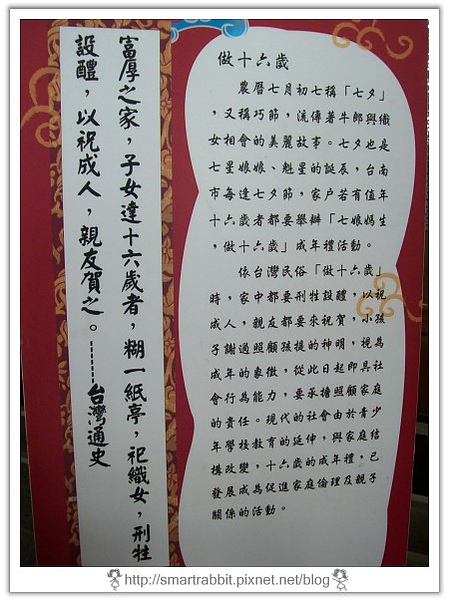 富厚之家，子女達十六歲者，糊一紙亭，祀織女，刑牲
設醴，以祝成人，親友賀之。┄┄┄台灣通史
做十六歲
農曆七月初七稱「七夕」
，又稱巧節，流傳著牛郎與織
女相會的美麗故事。七夕也是
七星娘娘、魁星的誕辰，台南
市每逢七夕節，家戶若有值年
十六歲者都要舉辦「七娘媽生
，做十六歲」成年禮活動。
依台灣民俗「做十六歲」
時，家中都要刑牲設醴，以祝
成人，親友都要來祝賀，小孩
子謝過照顧孩提的神明，視為
成年的象徵，從此日起即具社
會行為能力，要承擔照顧家庭
的責任。現代的社會由於青少
年學校教育的延伸，與家庭結
構改變，十六歲的成年禮，已
發展成為促進家庭倫理及親子
關係的活動。
http://smartrabbit.pixnet.net/blog